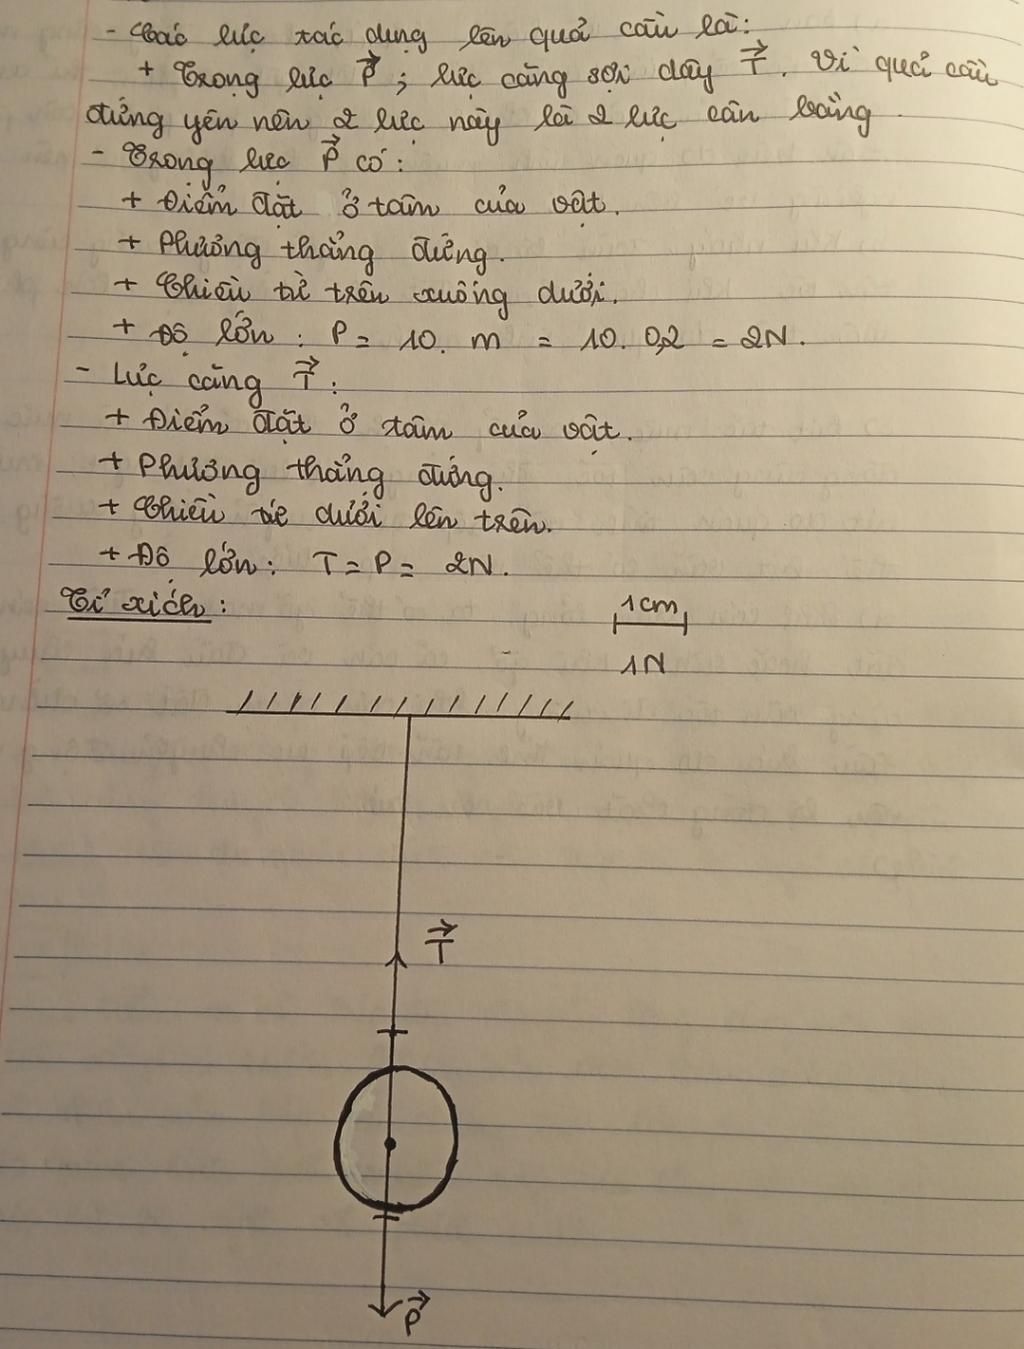 - Các lực tác dụng lên quả cầu là:
+ Trọng lực P⃗ ; lực căng sợi dây T⃗. Vì quả cầu
đứng yên nên 2 lực này là 2 lực cân bằng.
- Trọng lực P⃗ có:
+ Điểm đặt ở tâm của vật.
+ Phương thẳng đứng.
+ Chiều từ trên xuống dưới.
+ Độ lớn: P = 10. m = 10. 0,2 = 2N.
- Lực căng T⃗ :
+ Điểm đặt ở tâm của vật.
+ Phương thẳng đứng.
+ Chiều từ dưới lên trên.
+ Độ lớn: T = P = 2N.
Tỉ xích: 1cm
1N
T⃗
P⃗